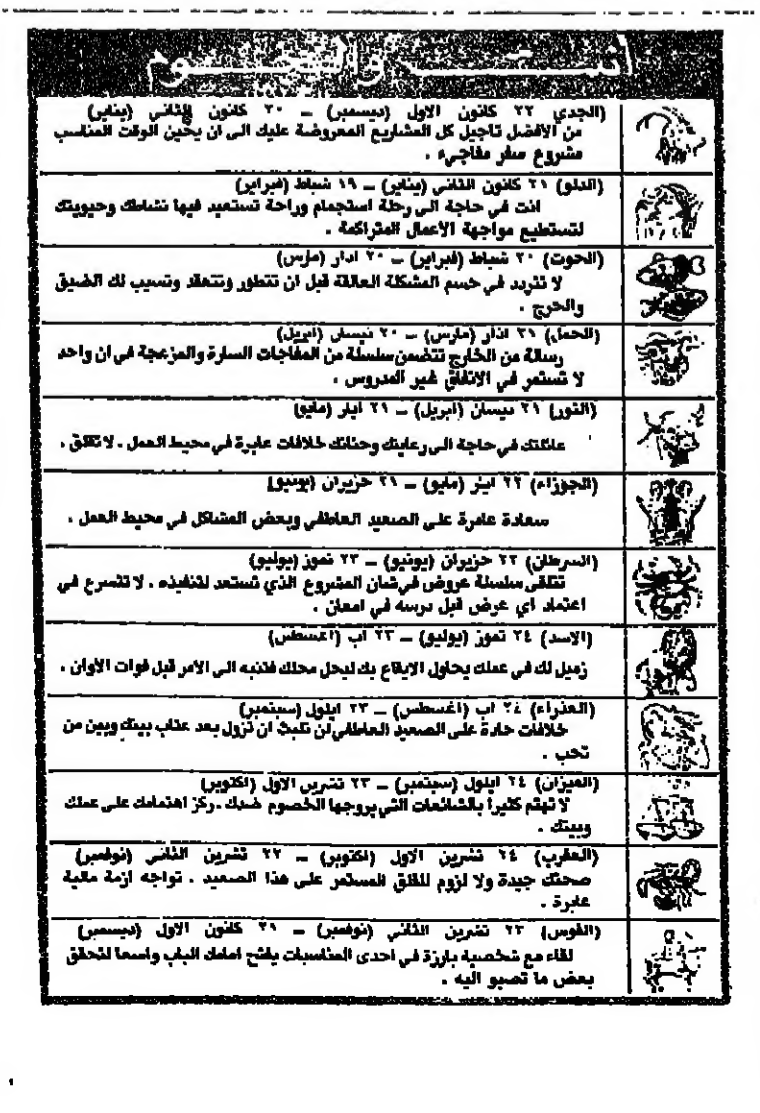 انت والنجوم
(الجدي ٢٢ كانون الاول (ديسمبر) ــ ٢٠ كانون الثاني (يناير)
من الأفضل تاجيل كل المشاريع المعروضة عليك الى ان يحين الوقت المناسب
مشروع سفر مفاجيء .
(الدلو) ٢١ كانون الثاني (يناير) ــ ١٩ شباط (فبراير)
انت في حاجة الى رحلة استجمام وراحة تستعيد فيها نشاطك وحيويتك
لتستطيع مواجهة الأعمال المتراكمة .
(الحوت) ٢٠ شباط (فبراير) ــ ٢٠ اذار (مارس)
لا تتردد في حسم المشكلة العالقة قبل ان تتطور وتتعقد وتسبب لك الضيق
والحرج .
(الحمل) ٢١ اذار (مارس) ــ ٢٠ نيسان (ابريل)
رسالة من الخارج تتضمن سلسلة من المفاجات السارة والمزعجة في ان واحد
لا تستمر في الانفاق غير المدروس .
(الثور) ٢١ نيسان (ابريل) ــ ٢١ ايار (مايو)
عائلتك في حاجة الى رعايتك وحنانك خلافات عابرة في محيط العمل . لا تقلق .
(الجوزاء) ٢٢ ايار (مايو) ــ ٢١ حزيران (يونيو)
سعادة عامرة على الصعيد العاطفي وبعض المشاكل في محيط العمل .
(السرطان) ٢٢ حزيران (يونيو) ــ ٢٣ تموز (يوليو)
تتلقى سلسلة عروض في شان المشروع الذي تستعد لتنفيذه . لا تتسرع في
اعتماد اي عرض قبل درسه في امعان .
(الاسد) ٢٤ تموز (يوليو) ــ ٢٣ اب (اغسطس)
زميل لك في عملك يحاول الايقاع بك ليحل محلك فتنبه الى الأمر قبل فوات الأوان .
(العذراء) ٢٤ اب (اغسطس) ــ ٢٣ ايلول (سبتمبر)
خلافات حادة على الصعيد العاطفي لن تلبث ان تزول بعد عتاب بينك وبين من
تحب .
(الميزان) ٢٤ ايلول (سبتمبر) ــ ٢٣ تشرين الاول (اكتوبر)
لا تهتم كثيرا بالشائعات التي يروجها الخصوم ضدك . ركز اهتمامك على عملك
وبيتك .
(العقرب) ٢٤ تشرين الاول (اكتوبر) ــ ٢٢ تشرين الثاني (نوفمبر)
صحتك جيدة ولا لزوم للقلق المستمر على هذا الصعيد . تواجه ازمة مالية
عابرة .
(القوس) ٢٣ تشرين الثاني (نوفمبر) ــ ٢١ كانون الاول (ديسمبر)
لقاء مع شخصية بارزة في احدى المناسبات يفتح امامك الباب واسعا لتحقق
بعض ما تصبو اليه .